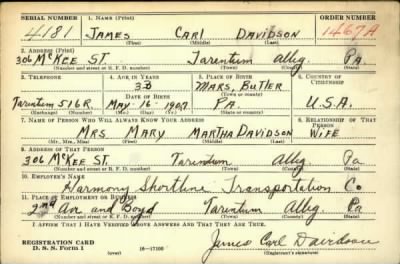 SERIAL NUMBER 1. NAME (Print) ORDER NUMBER
4181 JAMES CARL DAVIDSON 1467A
(First) (Middle) (Last)
2. ADDRESS (Print)
306 McKEE ST. Tarentum Alleg. PA.
(Number and street or R. F. D. number) (Town) (County) (State)
3. TELEPHONE 4. AGE IN YEARS 5. PLACE OF BIRTH 6. COUNTRY OF CITIZENSHIP
33 MARS, BUTLER
DATE OF BIRTH (Town or county)
Tarentum 516R. MAY-16-1907 PA. U.S.A.
(Exchange) (Number) (Mo.) (Day) (Yr.) (State or country)
7. NAME OF PERSON WHO WILL ALWAYS KNOW YOUR ADDRESS 8. RELATIONSHIP OF THAT PERSON
MRS. MARY MARTHA DAVIDSON WIFE
(Mr., Mrs., Miss) (First) (Middle) (Last)
9. ADDRESS OF THAT PERSON
306 McKEE ST. Tarentum Alleg. Pa
(Number and street or R. F. D. number) (Town) (County) (State)
10. EMPLOYER'S NAME
Harmony Shortline Transportation Co
11. PLACE OF EMPLOYMENT OR BUSINESS
2nd Av and Boyd Tarentum Alleg. Pa
(Number and street or R. F. D. number) (Town) (County) (State)
I AFFIRM THAT I HAVE VERIFIED ABOVE ANSWERS AND THAT THEY ARE TRUE.
REGISTRATION CARD
D. S. S. Form 1 (over) 16-17105 James Carl Davidson
(Registrant's signature)